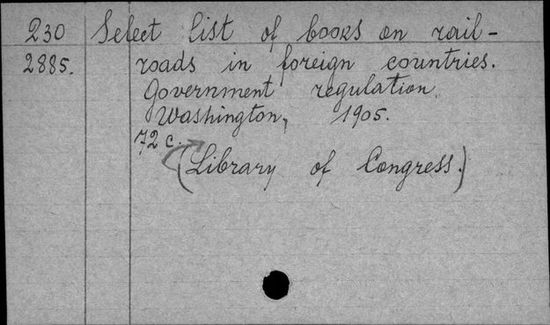 230 Select list of books on rail-
2885. roads in foreign countries.
Government regulation.
Washington, 1905.
72 c.
(Library of Congress.)